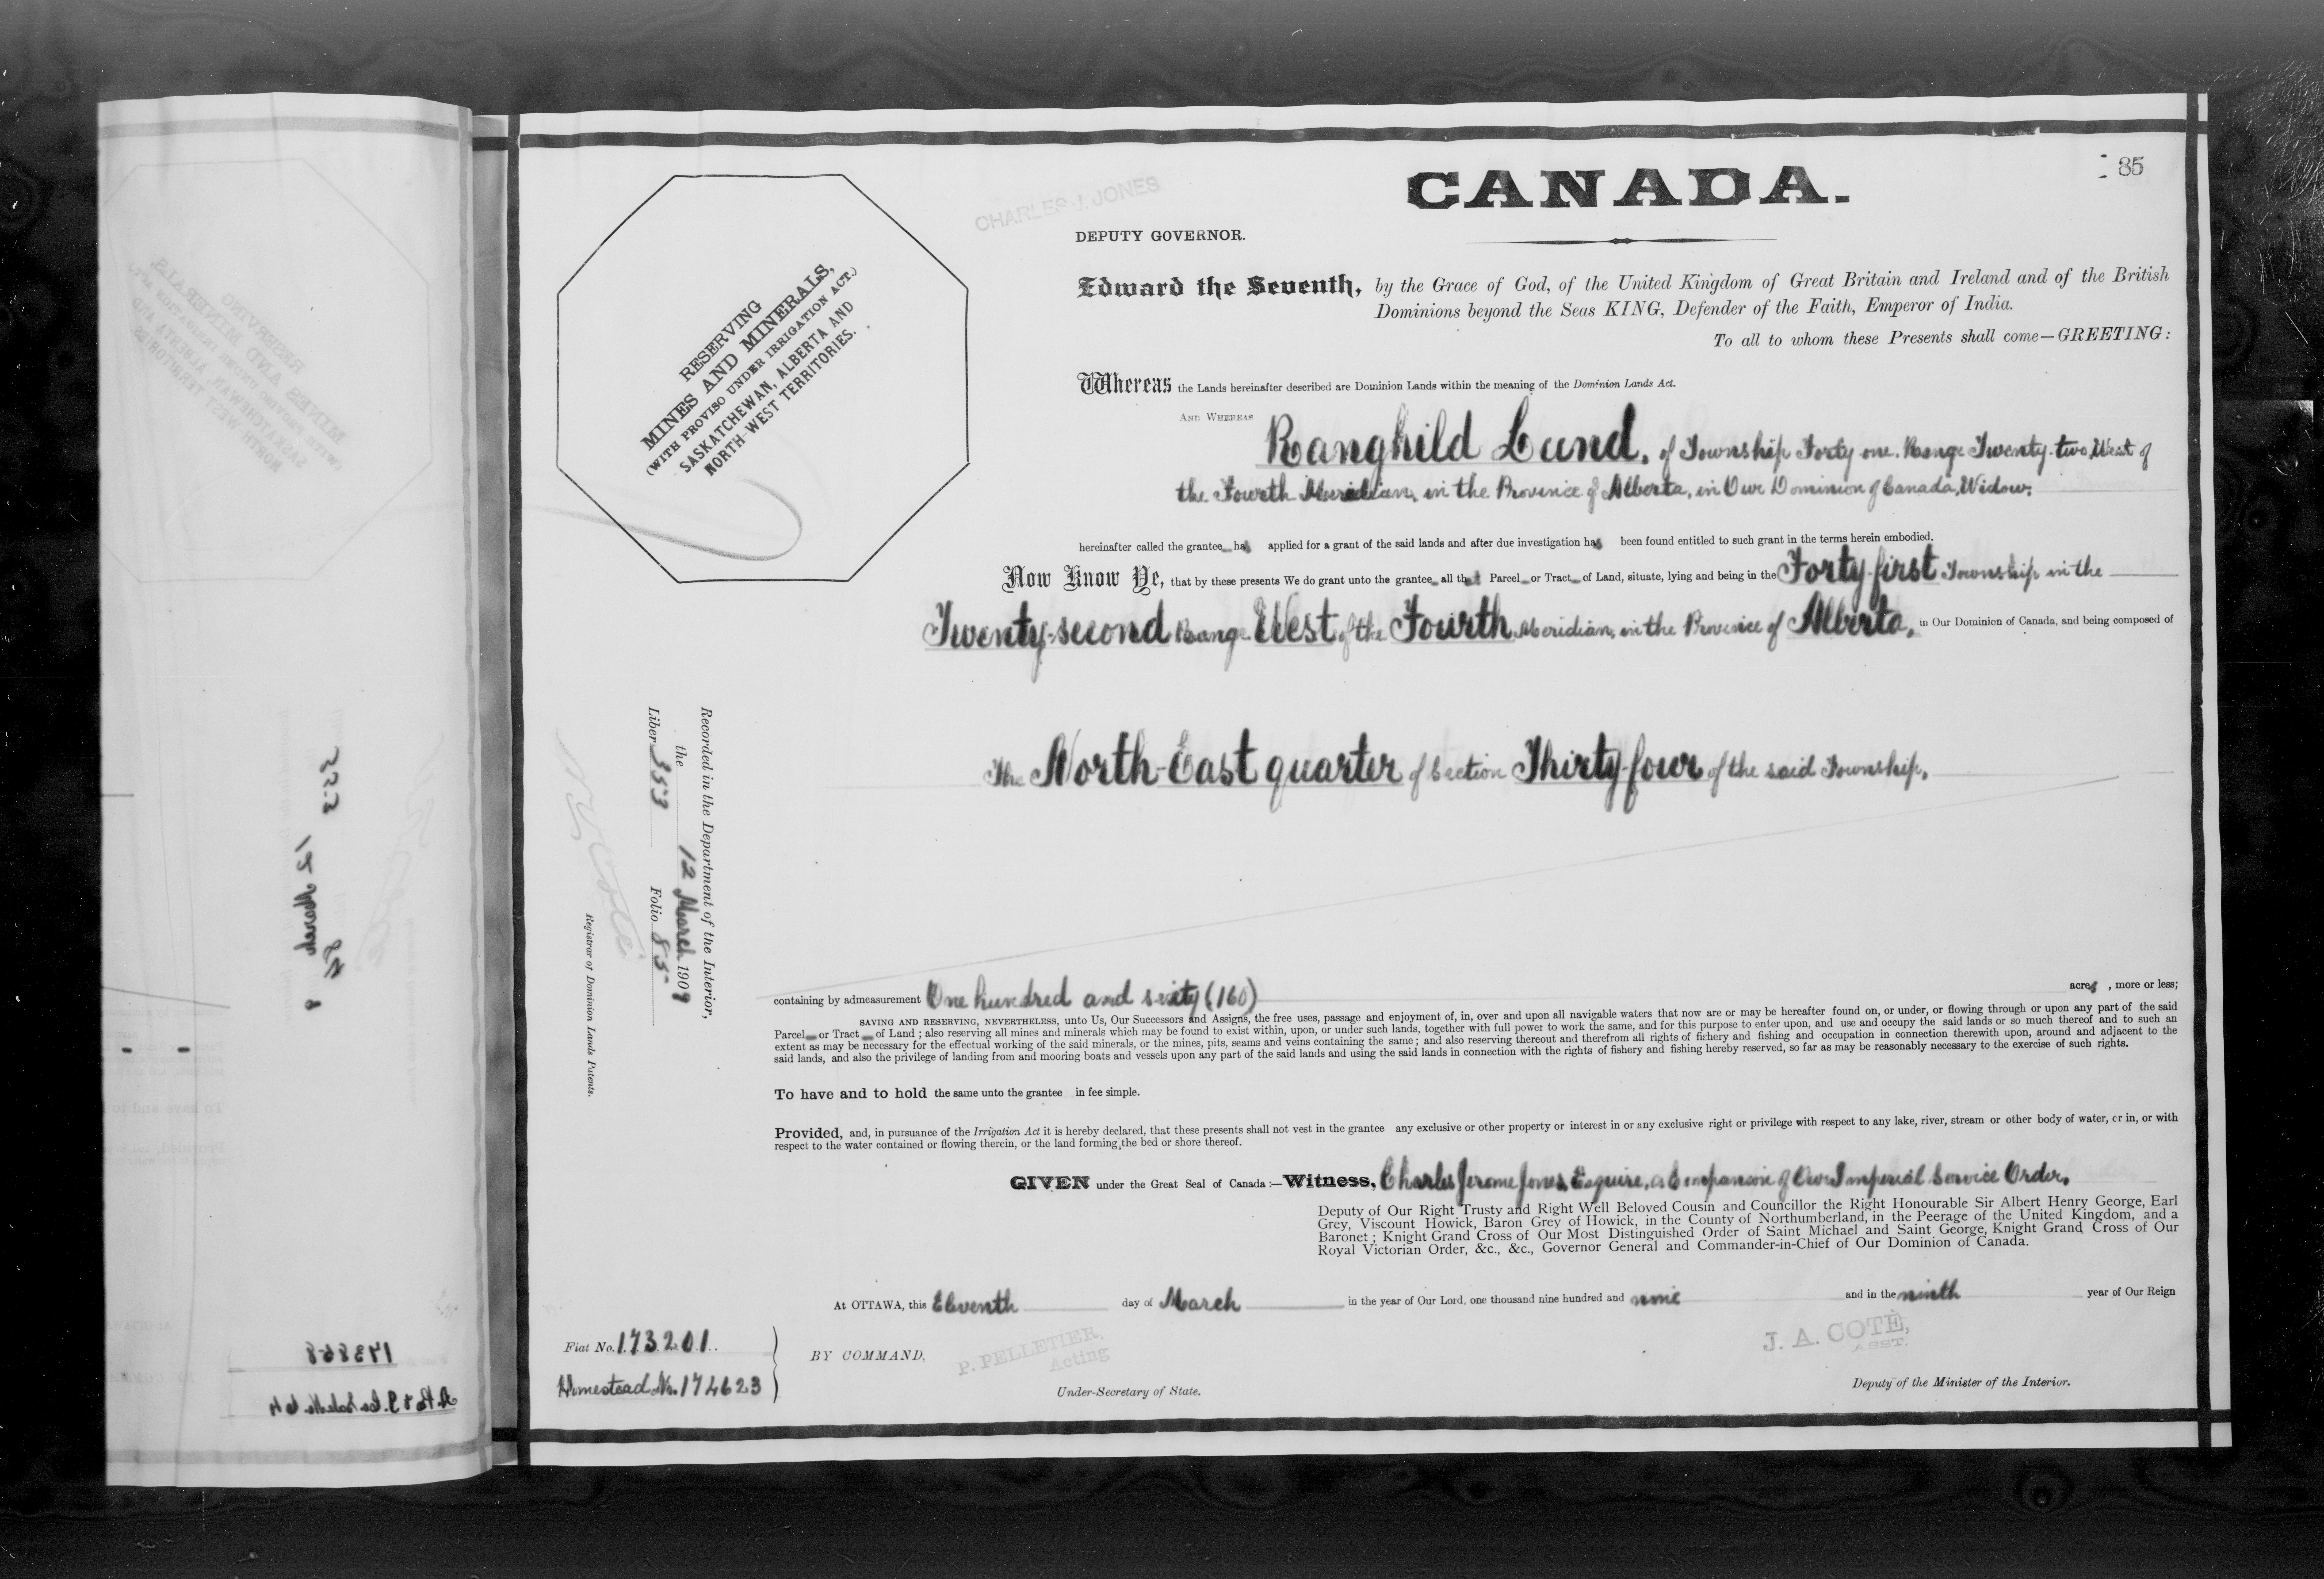 35
CANADA.
CHARLES J. JONES
DEPUTY GOVERNOR.
RESERVING
MINES AND MINERALS,
(WITH PROVISO UNDER IRRIGATION ACT.)
SASKATCHEWAN, ALBERTA AND
NORTH-WEST TERRITORIES.
Edward the Seventh, by the Grace of God, of the United Kingdom of Great Britain and Ireland and of the British
Dominions beyond the Seas KING, Defender of the Faith, Emperor of India.
To all to whom these Presents shall come—GREETING:
Whereas the Lands hereinafter described are Dominion Lands within the meaning of the Dominion Lands Act.
AND WHEREAS Ranghild Lund, of Township Forty one. Range Twenty-two, West of
the Fourth Meridian, in the Province of Alberta, in Our Dominion of Canada, Widow.
hereinafter called the grantee has applied for a grant of the said lands and after due investigation has been found entitled to such grant in the terms herein embodied.
Now Know Ye, that by these presents We do grant unto the grantee all that Parcel or Tract of Land, situate, lying and being in the Forty-first Township in the
Twenty-second Range West of the Fourth Meridian, in the Province of Alberta, in Our Dominion of Canada, and being composed of
The North-East quarter of Section Thirty-four of the said Township.
Recorded in the Department of the Interior,
the 12 March 1909
Liber 353 Folio 85
N. O. Coté
Registrar of Dominion Lands Patents.
containing by admeasurement One hundred and sixty (160) acres, more or less;
SAVING AND RESERVING, NEVERTHELESS, unto Us, Our Successors and Assigns, the free uses, passage and enjoyment of, in, over and upon all navigable waters that now are or may be hereafter found on, or under, or flowing through or upon any part of the said
Parcel or Tract of Land; also reserving all mines and minerals which may be found to exist within, upon, or under such lands, together with full power to work the same, and for this purpose to enter upon, and use and occupy the said lands or so much thereof and to such an
extent as may be necessary for the effectual working of the said minerals, or the mines, pits, seams and veins containing the same; and also reserving thereout and therefrom all rights of fishery and fishing and occupation in connection therewith upon, around and adjacent to the
said lands, and also the privilege of landing from and mooring boats and vessels upon any part of the said lands and using the said lands in connection with the rights of fishery and fishing hereby reserved, so far as may be reasonably necessary to the exercise of such rights.
To have and to hold the same unto the grantee in fee simple.
Provided, and, in pursuance of the Irrigation Act it is hereby declared, that these presents shall not vest in the grantee any exclusive or other property or interest in or any exclusive right or privilege with respect to any lake, river, stream or other body of water, or in, or with
respect to the water contained or flowing therein, or the land forming the bed or shore thereof.
GIVEN under the Great Seal of Canada:—Witness, Charles Jerome Jones, Esquire, a Companion of Our Imperial Service Order,
Deputy of Our Right Trusty and Right Well Beloved Cousin and Councillor the Right Honourable Sir Albert Henry George, Earl
Grey, Viscount Howick, Baron Grey of Howick, in the County of Northumberland, in the Peerage of the United Kingdom, and a
Baronet; Knight Grand Cross of Our Most Distinguished Order of Saint Michael and Saint George, Knight Grand Cross of Our
Royal Victorian Order, &c., &c., Governor General and Commander-in-Chief of Our Dominion of Canada.
At OTTAWA, this Eleventh day of March in the year of Our Lord, one thousand nine hundred and nine and in the ninth year of Our Reign
Fiat No. 173201.
Homestead No. 174623
BY COMMAND,
P. PELLETIER,
Acting
Under-Secretary of State.
J. A. COTÉ,
ASST.
Deputy of the Minister of the Interior.